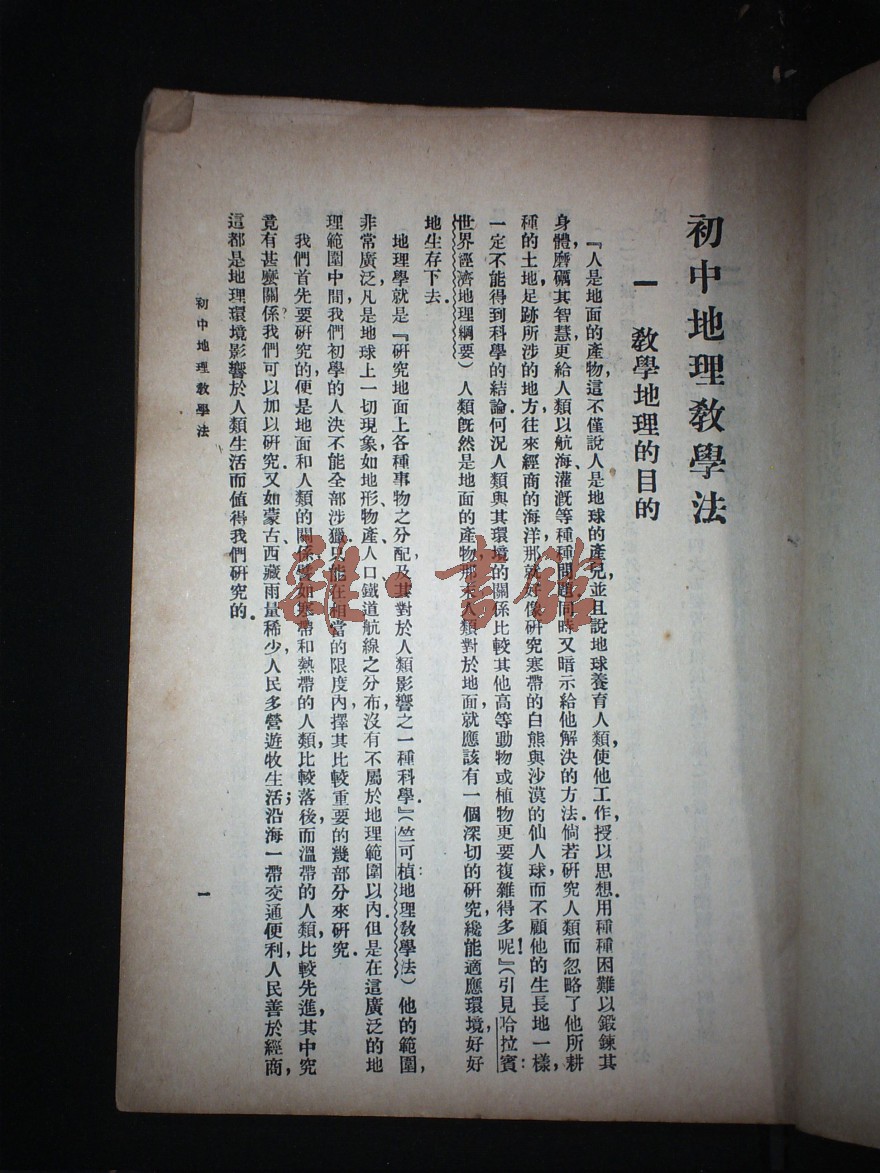 初中地理教學法
一　教學地理的目的
『人是地面的產物，這不僅說人是地球的產兒，並且說地球養育人類，使他工作，授以思想，用種種困難以鍛鍊其
身體，磨礪其智慧，更給人類以航海、灌漑等種種問題，同時又暗示給他解決的方法。倘若硏究人類而忽略了他所耕
種的土地，足跡所涉的地方，往來經商的海洋，那就好像硏究寒帶的白熊與沙漠的仙人球，而不顧他的生長地一樣，
一定不能得到科學的結論。何況人類與其環境的關係比較其他高等動物或植物更要複雜得多呢！』（引見哈拉賓：
世界經濟地理綱要）人類旣然是地面的產物，那末人類對於地面，就應該有一個深切的硏究，纔能適應環境，好好
地生存下去。
地理學就是『硏究地面上各種事物之分配，及其對於人類影響之一種科學。』（竺可楨：地理敎學法）他的範圍，
非常廣泛，凡是地球上一切現象如地形、物產、人口鐵道航線之分布，沒有不屬於地理範圍以內。但是在這廣泛的地
理範圍中間，我們初學的人決不能全部涉獵，只能在相當的限度內，擇其比較重要的幾部分來硏究。
我們首先要硏究的，便是地面和人類的關係。譬如寒帶和熱帶的人類，比較落後，而溫帶的人類，比較先進，其中究
竟有甚麼關係？我們可以加以硏究。又如蒙古、西藏雨量稀少，人民多營遊牧生活；沿海一帶交通便利，人民善於經商，
這都是地理環境影響於人類生活而值得我們硏究的。
初中地理敎學法
一
雜·書館